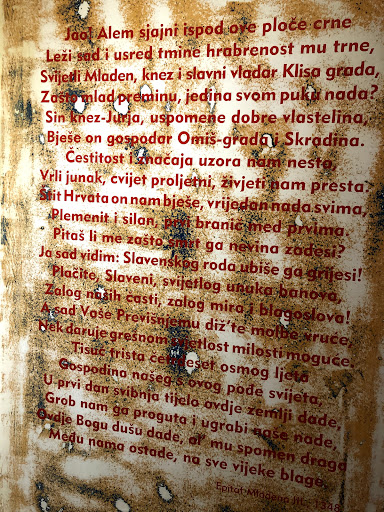 Jao! Alem sjajni ispod ove ploče crne
Leži sad i usred tmine hrabrenost mu trne,
Svijetli Mladen, knez i slavni vladar Klisa grada,
Zašto mlad preminu, jedina svom puku nada?
Sin knez-Jurja, uspomene dobre vlastelina,
Bješe on gospodar Omiš-grada i Skradina.
Čestitost i značaja uzora nam nesta,
Vrli junak, cvijet proljetni, živjeti nam presta.
Štit Hrvata on nam bješe, vrijedan nada svima,
Plemenit i silan, prvi branič med prvima.
Pitaš li me zašto smrt ga nevina zadesi?
Ja sad vidim: Slavenskog roda ubiše ga grijesi!
Plačite, Slaveni, svijetlog unuka banova,
Zalog naših časti, zalog mira i blagoslova!
A sad Vaše Previšnjemu diž'te molbe vruće,
Nek daruje grešnom svjetlost milosti moguće,
Tisuć trista četrdeset osmog ljeta
Gospodina našeg s ovog pođe svijeta,
U prvi dan svibnja tijelo ovdje zemlji dade,
Grob nam ga proguta i ugrabi naše nade,
Ovdje Bogu dušu dade, al' mu spomen drago
Među nama ostade, na sve vijeke blago.
Epitaf Mladena III - 1348.